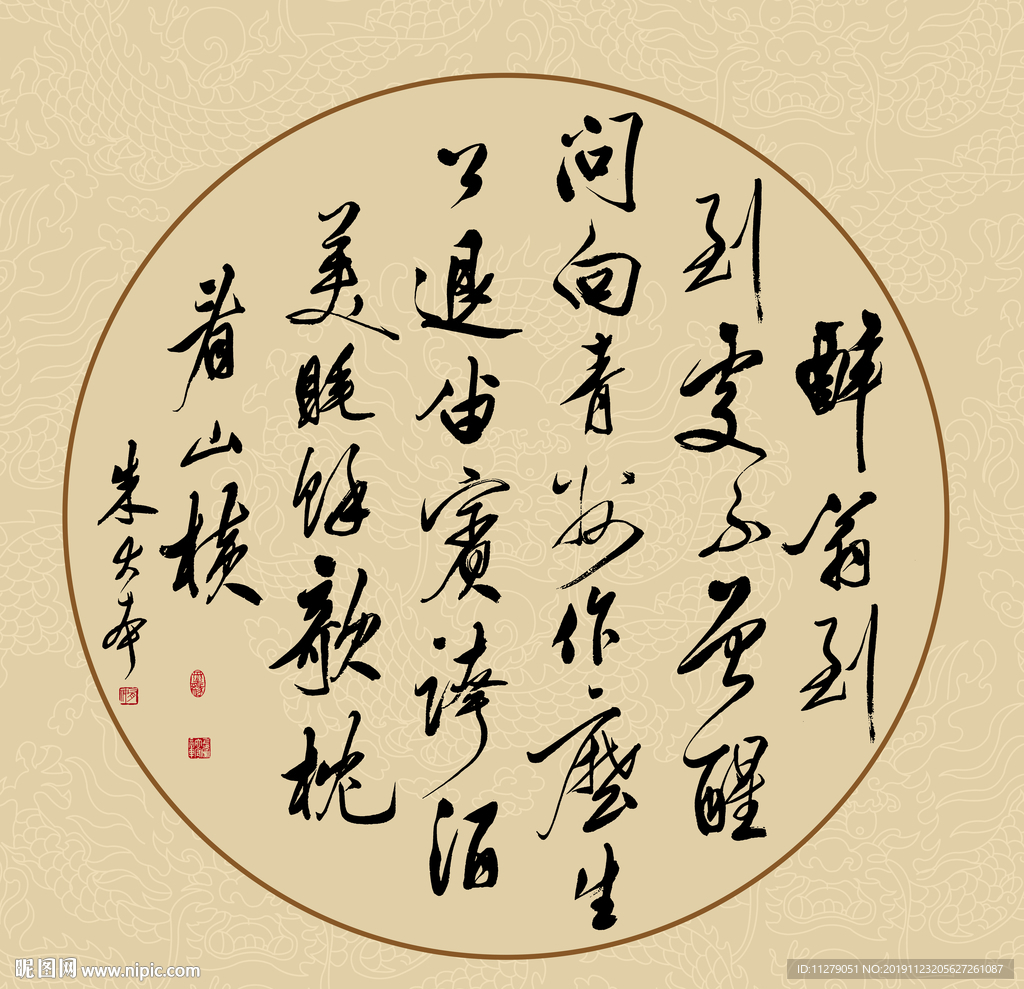 醉翁到
到处不曾醒
问向青州作么生
公退留宾夸酒
美眠馀欹枕
看山横
朱大有
昵图网 www.nipic.com
ID:11279051 NO:20191123205627261087